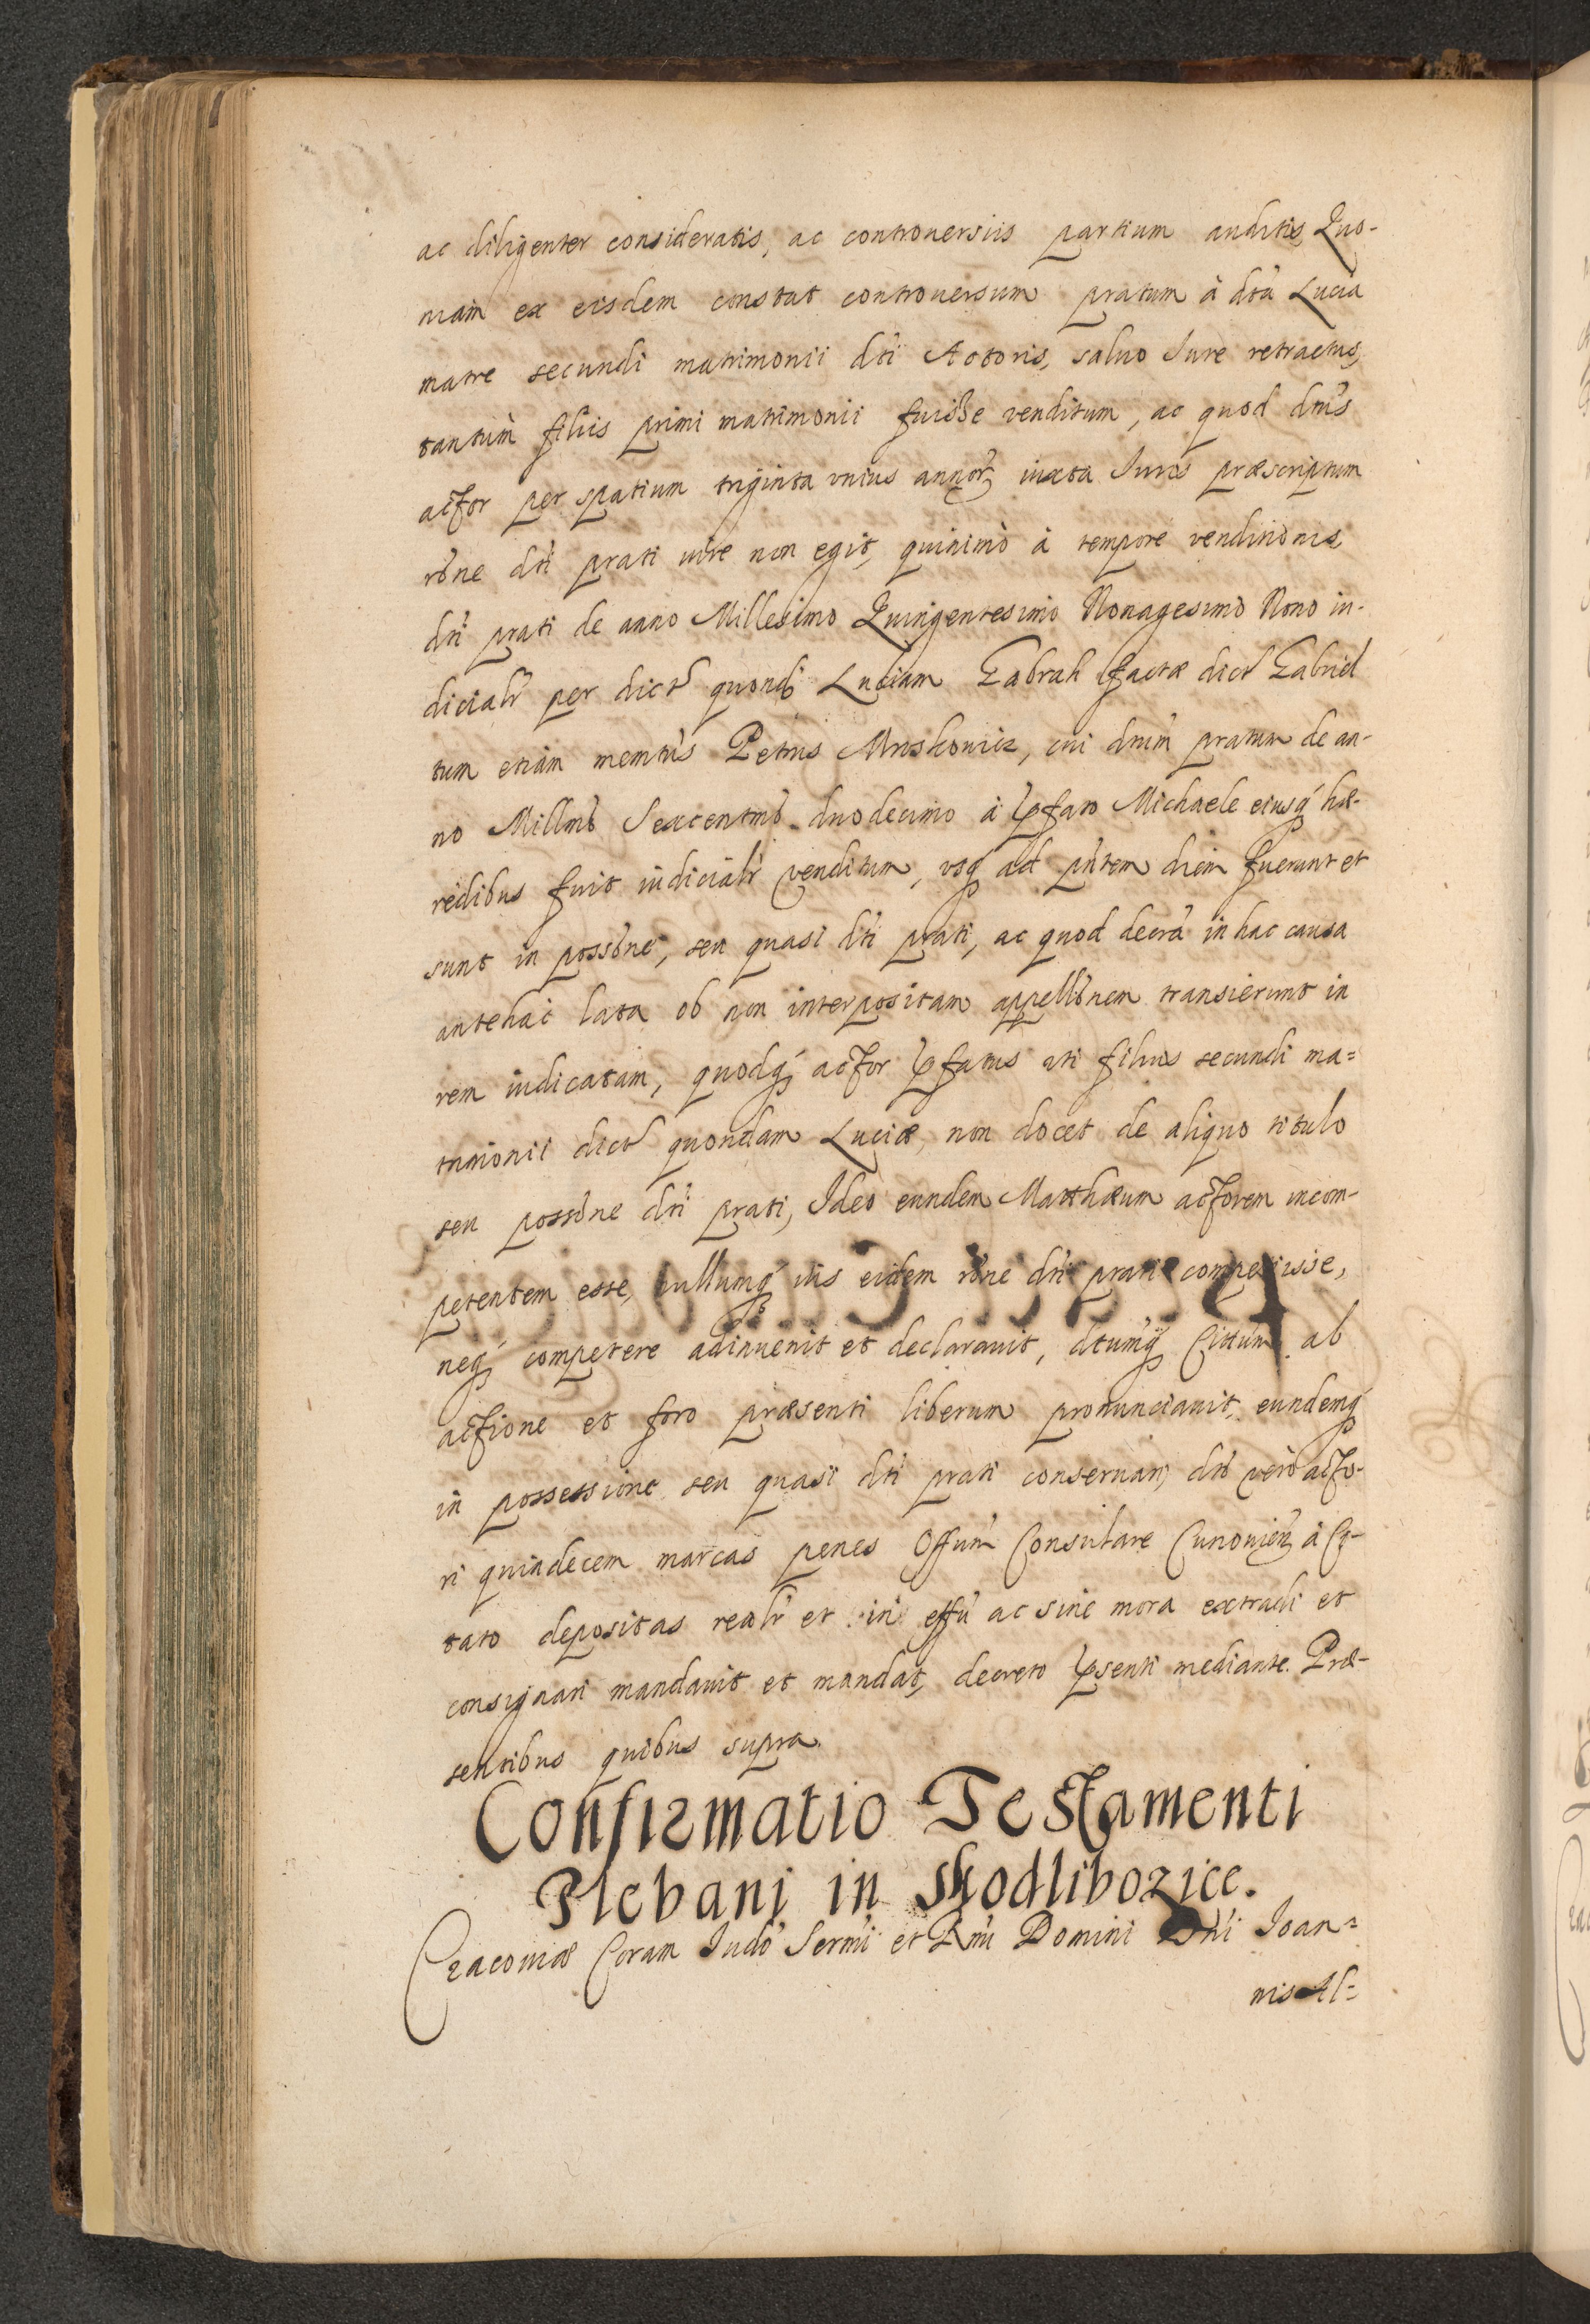 ac diligenter consideratis, ac controuersiis partium auditis, Quo-
niam ex eisdem constat controuersum pratum à dta Lucia
matre secundi matrimonii dti Actoris, saluo Iure retractus,
tantùm filiis primi matrimonii fuisse venditum, ac quod dtus
actor per spatium triginta vnius annor, iuxta Iuris præscriptum
rone dti prati iure non egit, quinimò à tempore venditionis
dti prati de anno Millesimo Quingentesimo Nonagesimo Nono iu-
dicialr per dict quond Luciam Gabrah factæ dict Gabriel
tum etiam memtus Petrus Mroskowicz, cui dtum pratum de an-
no Millmo Sexcentmo duodecimo à pfato Michaele eiusq hæ-
redibus fuit iudicialr venditum, vsq ad pntem diem fuerunt et
sunt in possone, seu quasi dti prati, ac quod decra in hac causa
antehac lata ob non interpositam appellonem transierunt in
rem iudicatam, quodq actor pfatus uti filius secundi ma=
trimonii dict quondam Luciæ, non docet de aliquo titulo
seu possone dti prati, Ideo eundem Matthæum actorem incom-
petentem esse, nullumq ius eidem rone dti prati competiisse,
neq competere adinuenit et declarauit, dtumq Cittum ab
actione et foro præsenti liberum pronunciauit, eundemq
in possessione seu quasi dti prati conseruari, dto verò acto-
ri quindecem marcas penes Offum Consulare à Ci-
tato depositas realr et in effu ac sine mora extradi et
consignari mandauit et mandat, decreto psenti mediante. Præ-
sentibus quibus supra.
Confirmatio Testamenti
Plebani in Modliborzice.
Cracouiæ Coram Iudo Sermi et Rmi Domini Dni Ioan=
nis Al=